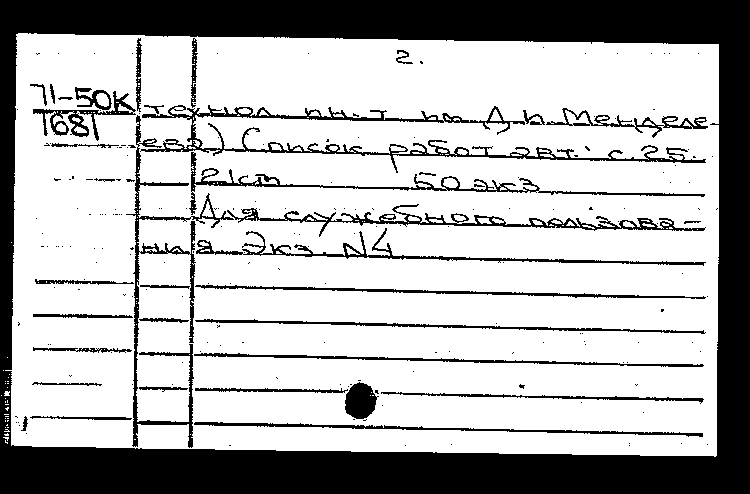 2.
71-50К
1681
технол. ин-т им. Д. И. Менделе-
ева) Список работ авт.: с. 25.
21 см. 50 экз.
Для служебного пользова-
ния Экз. N4